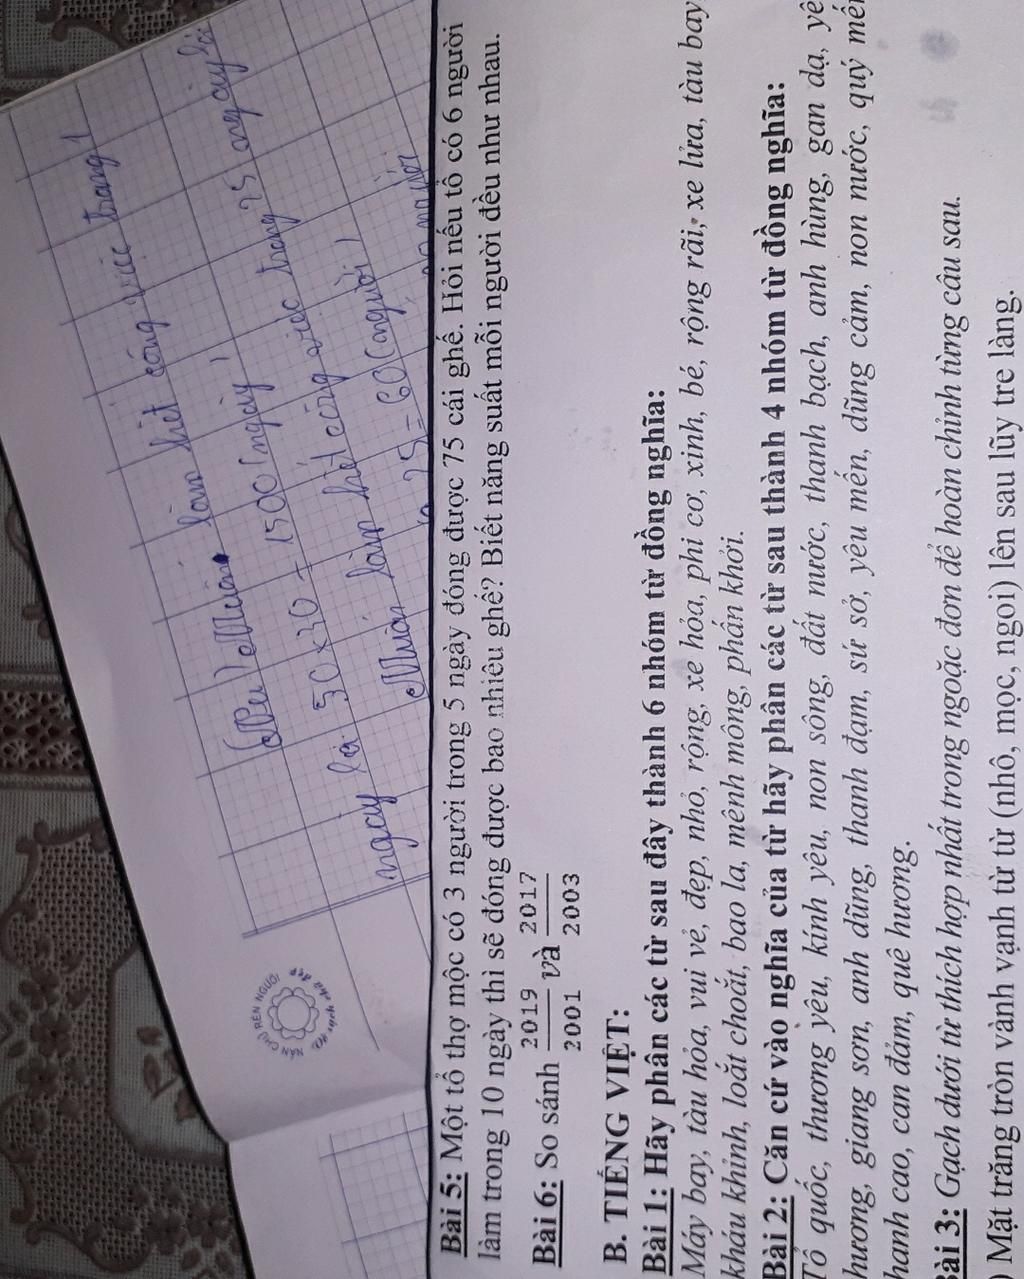 (Đề) Muốn làm hết công việc trong 1
ngày là 50 x 30 = 1500 (ngày)
Muốn làm hết công việc trong 25 ngày là
25 = 60 (người)
người
RÈN NGƯỜI
Bài 5: Một tổ thợ mộc có 3 người trong 5 ngày đóng được 75 cái ghế. Hỏi nếu tổ có 6 người
làm trong 10 ngày thì sẽ đóng được bao nhiêu ghế? Biết năng suất mỗi người đều như nhau.
Bài 6: So sánh 2019/2001 và 2017/2003
B. TIẾNG VIỆT:
Bài 1: Hãy phân các từ sau đây thành 6 nhóm từ đồng nghĩa:
Máy bay, tàu hỏa, vui vẻ, đẹp, nhỏ, rộng, xe hỏa, phi cơ, xinh, bé, rộng rãi, xe lửa, tàu bay
kháu khỉnh, loắt choắt, bao la, mênh mông, phấn khởi.
Bài 2: Căn cứ vào nghĩa của từ hãy phân các từ sau thành 4 nhóm từ đồng nghĩa:
Tổ quốc, thương yêu, kính yêu, non sông, đất nước, thanh bạch, anh hùng, gan dạ, yê
hương, giang sơn, anh dũng, thanh đạm, sứ sở, yêu mến, dũng cảm, non nước, quý mến
hanh cao, can đảm, quê hương.
ài 3: Gạch dưới từ thích hợp nhất trong ngoặc đơn để hoàn chỉnh từng câu sau.
) Mặt trăng tròn vành vạnh từ từ (nhô, mọc, ngoi) lên sau lũy tre làng.